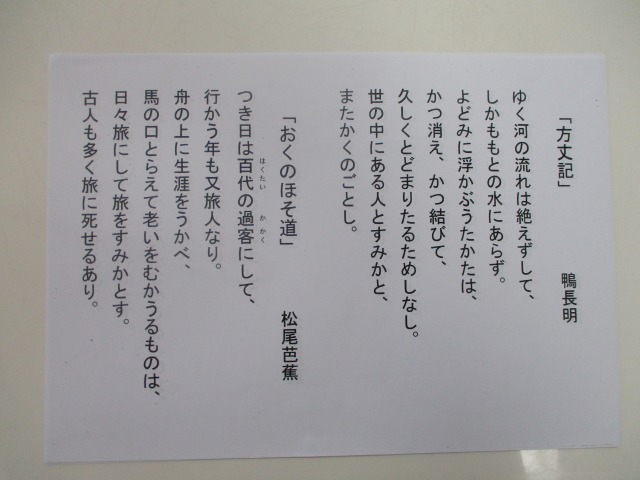 「方丈記」 鴨長明
ゆく河の流れは絶えずして、
しかももとの水にあらず。
よどみに浮かぶうたかたは、
かつ消え、かつ結びて、
久しくとどまりたるためしなし。
世の中にある人とすみかと、
またかくのごとし。
「おくのほそ道」 松尾芭蕉
つき日は百代の過客にして、
はくたい かかく
行かう年も又旅人なり。
舟の上に生涯をうかべ、
馬の口とらえて老いをむかうるものは、
日々旅にして旅をすみかとす。
古人も多く旅に死せるあり。